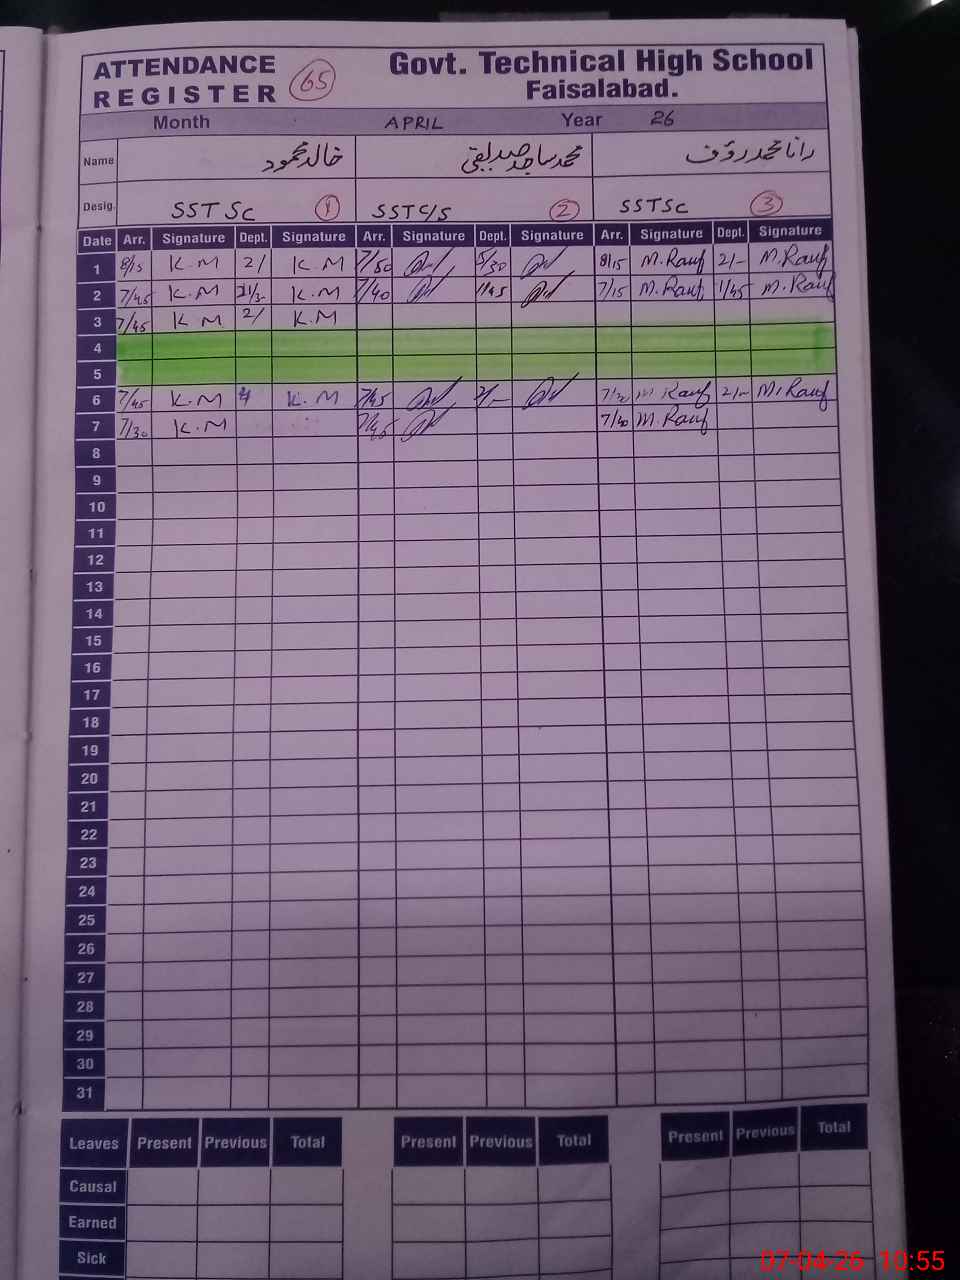 ATTENDANCE REGISTER 65
Govt. Technical High School
Faisalabad.
Month APRIL Year 26
Name خالد محمود محمد ساجد صدیقی رانا محمد رؤف
Desig. SST Sc 1 SST C/S 2 SSTSc 3
Date Arr. Signature Dept. Signature Arr. Signature Dept. Signature Arr. Signature Dept. Signature
1 8/15 K.M 2/ K.M 7/50 5/30 8/15 M.Rauf 2/- M.Rauf
2 7/45 K.M K.M 7/40 1/45 7/15 M.Rauf 1/45 M.Rauf
3 7/45 K.M 2/ K.M
4
5
6 7/45 K.M K.M 7/45 2/- M.Rauf 2/- M.Rauf
7 7/30 K.M 7/45 M.Rauf
8
9
10
11
12
13
14
15
16
17
18
19
20
21
22
23
24
25
26
27
28
29
30
31
Leaves Present Previous Total Present Previous Total Present Previous Total
Causal
Earned
Sick
07-04-26 10:55